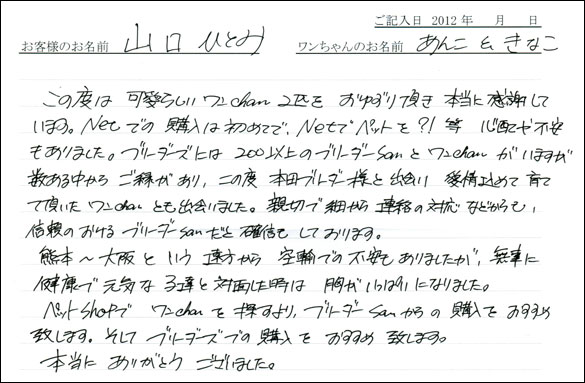 ご記入日 2012年 月 日
お客様のお名前 山口 ひとみ ワンちゃんのお名前 あんこ & きなこ
この度は 可愛らしい ワンchan 2匹を おゆずり頂き 本当に 感謝して
います。Netでの購入は初めてで、Netでペットを?! 等 心配や不安
もありました。ブリーダーズには 200以上のブリーダーsanとワンchan がいますが
数ある中から ご縁があり、この度 本田ブリーダー様と出会い 愛情込めて 育て
て頂いた ワンchan とも出会いました。親切で細から 連絡の対応などからも、
信頼のおける ブリーダーsanだと 確信も しております。
熊本〜大阪 という 遠方から 空輸での不安もありましたが、無事に
健康で 元気な 子達と 対面した時は 胸がいっぱいになりました。
ペットshopで ワンchanを 探すより、ブリーダーsanからの購入を おすすめ
致します。そして ブリーダーズでの購入を おすすめ 致します。
本当に ありがとう ございました。